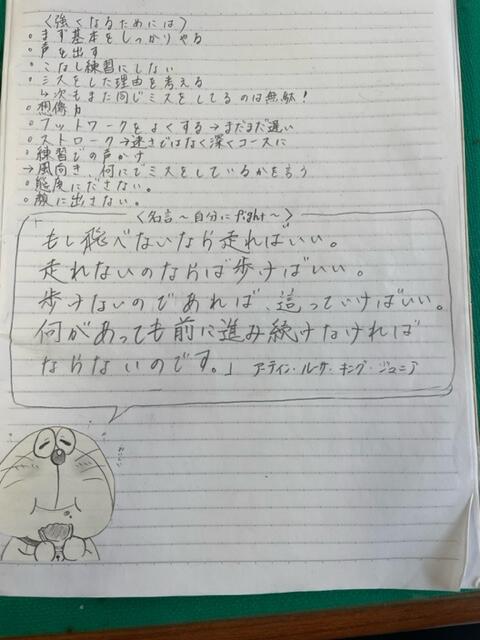 〈強くなるためには〉
・まず基本をしっかりやる
・声を出す
・こなし練習にしない
・ミスをした理由を考える
↳次もまた同じミスをしてるのは無駄!
・想像力
・フットワークをよくする→まだまだ遅い
・ストローク→速さではなく深くコースに
・練習での声かけ
→風向き、何にでミスをしているかを言う
・態度にださない。
・顔に出さない。
〈名言〜自分にfight〜〉
もし飛べないなら走ればいい。
走れないのならば歩けばいい。
歩けないのであれば、這っていけばいい。
何があっても前に進み続けなければ
ならないのです。」 アーティン・ルーサー・キング・ジュニア